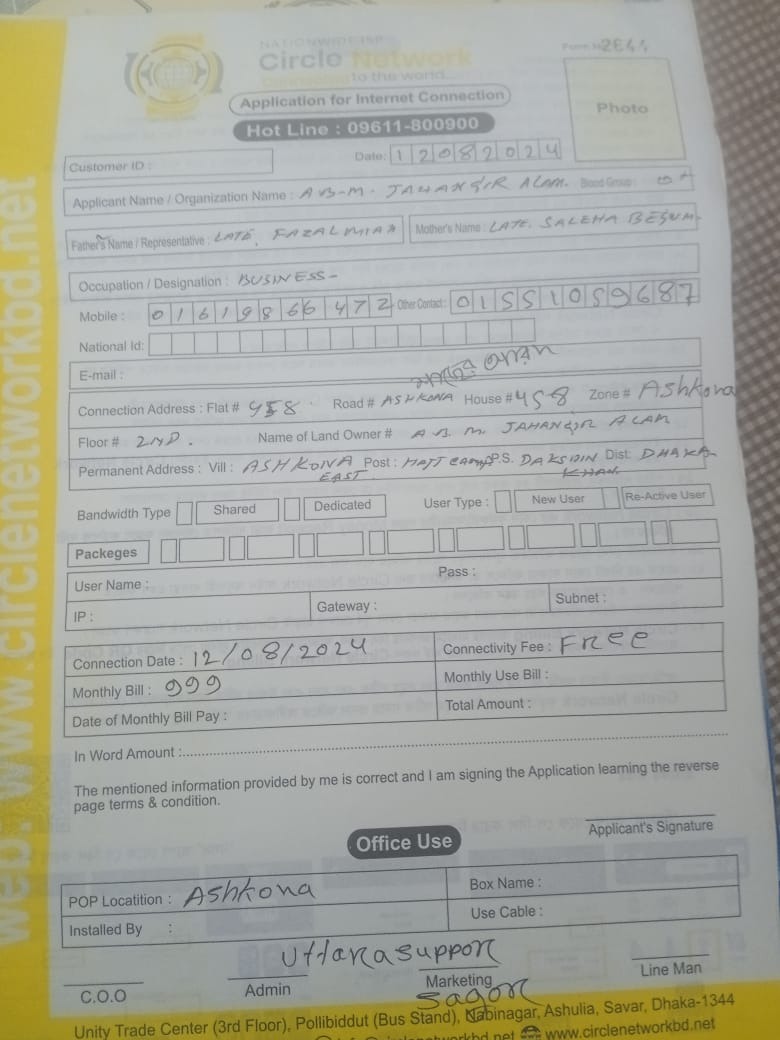 web: www.circlenetworkbd.net
NATIONWIDE ISP
Circle Network
Connected to the world...
Form No 2644
Photo
Application for Internet Connection
Hot Line : 09611-800900
Customer ID :
Date: 12082024
Applicant Name / Organization Name : A.B.M. JAHANGIR ALAM. Blood Group :
Father's Name / Representative : LATE. FAZAL MIAH Mother's Name : LATE. SALEHA BEGUM.
Occupation / Designation : BUSINESS-
Mobile : 01619866472 Other Contact : 01551059687
National Id:
E-mail :
Connection Address : Flat # 458 Road # ASHKONA House # 458 Zone # Ashkona
Floor # 2ND. Name of Land Owner # A.B.M. JAHANGIR ALAM
Permanent Address : Vill : ASHKONA EAST Post : HAJI CAMP P.S. DAKSHIN KHAN Dist: DHAKA-
Bandwidth Type Shared Dedicated User Type : New User Re-Active User
Packeges
User Name : Pass :
IP : Gateway : Subnet :
Connection Date : 12/08/2024 Connectivity Fee : FREE
Monthly Bill : 999 Monthly Use Bill :
Date of Monthly Bill Pay : Total Amount :
In Word Amount :
The mentioned information provided by me is correct and I am signing the Application learning the reverse
page terms & condition.
Applicant's Signature
Office Use
POP Locatition : Ashkona Box Name :
Installed By : Use Cable :
Uttara support
C.O.O Admin Marketing Line Man
Sagor
Unity Trade Center (3rd Floor), Pollibiddut (Bus Stand), Nabinagar, Ashulia, Savar, Dhaka-1344
www.circlenetworkbd.net